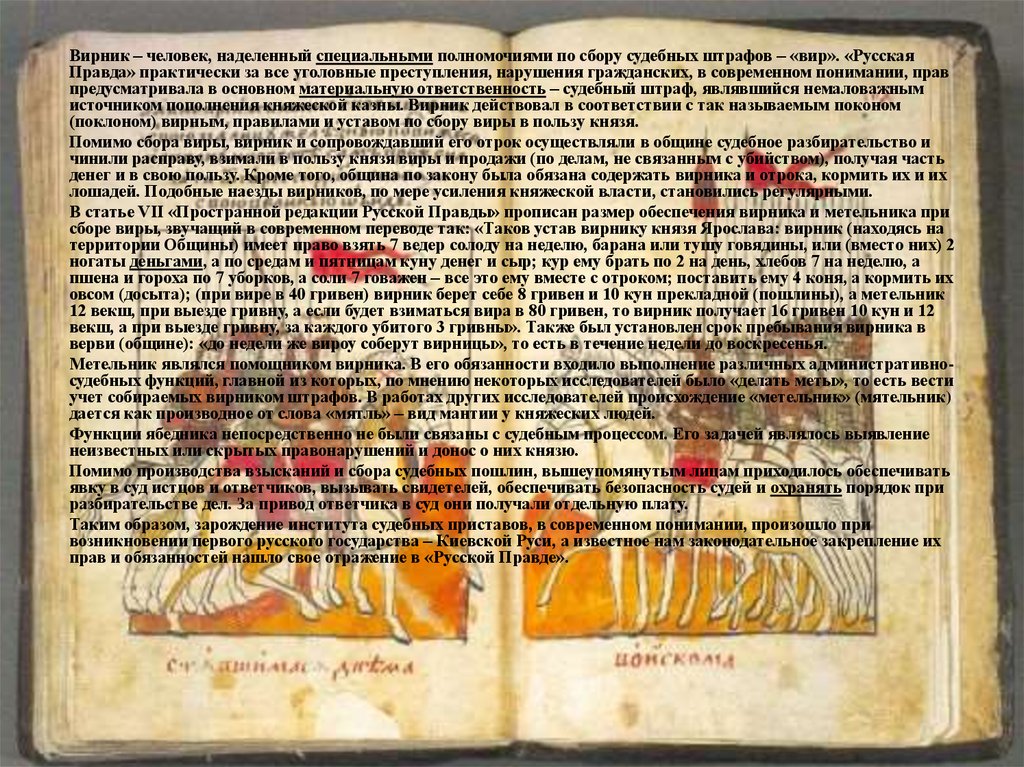 Вирник – человек, наделенный специальными полномочиями по сбору судебных штрафов – «вир». «Русская
Правда» практически за все уголовные преступления, нарушения гражданских, в современном понимании, прав
предусматривала в основном материальную ответственность – судебный штраф, являвшийся немаловажным
источником пополнения княжеской казны. Вирник действовал в соответствии с так называемым поконом
(поклоном) вирным, правилами и уставом по сбору виры в пользу князя.
Помимо сбора виры, вирник и сопровождавший его отрок осуществляли в общине судебное разбирательство и
чинили расправу, взимали в пользу князя виры и продажи (по делам, не связанным с убийством), получая часть
денег и в свою пользу. Кроме того, община по закону была обязана содержать вирника и отрока, кормить их и их
лошадей. Подобные наезды вирников, по мере усиления княжеской власти, становились регулярными.
В статье VII «Пространной редакции Русской Правды» прописан размер обеспечения вирника и метельника при
сборе виры, звучащий в современном переводе так: «Таков устав вирнику князя Ярослава: вирник (находясь на
территории Общины) имеет право взять 7 ведер солоду на неделю, барана или тушу говядины, или (вместо них) 2
ногаты деньгами, а по средам и пятницам куну денег и сыр; кур ему брать по 2 на день, хлебов 7 на неделю, а
пшена и гороха по 7 уборков, а соли 7 говажен – все это ему вместе с отроком; поставить ему 4 коня, а кормить их
овсом (досыта); (при вире в 40 гривен) вирник берет себе 8 гривен и 10 кун прекладной (пошлины), а метельник
12 векш, при выезде гривну, а если будет взиматься вира в 80 гривен, то вирник получает 16 гривен 10 кун и 12
векш, а при выезде гривну, за каждого убитого 3 гривны». Также был установлен срок пребывания вирника в
верви (общине): «до недели же вироу соберут вирницы», то есть в течение недели до воскресенья.
Метельник являлся помощником вирника. В его обязанности входило выполнение различных административно-
судебных функций, главной из которых, по мнению некоторых исследователей было «делать меты», то есть вести
учет собираемых вирником штрафов. В работах других исследователей происхождение «метельник» (мятельник)
дается как производное от слова «мятль» – вид мантии у княжеских людей.
Функции ябедника непосредственно не были связаны с судебным процессом. Его задачей являлось выявление
неизвестных или скрытых правонарушений и донос о них князю.
Помимо производства взысканий и сбора судебных пошлин, вышеупомянутым лицам приходилось обеспечивать
явку в суд истцов и ответчиков, вызывать свидетелей, обеспечивать безопасность судей и охранять порядок при
разбирательстве дел. За привод ответчика в суд они получали отдельную плату.
Таким образом, зарождение института судебных приставов, в современном понимании, произошло при
возникновении первого русского государства – Киевской Руси, а известное нам законодательное закрепление их
прав и обязанностей нашло свое отражение в «Русской Правде».